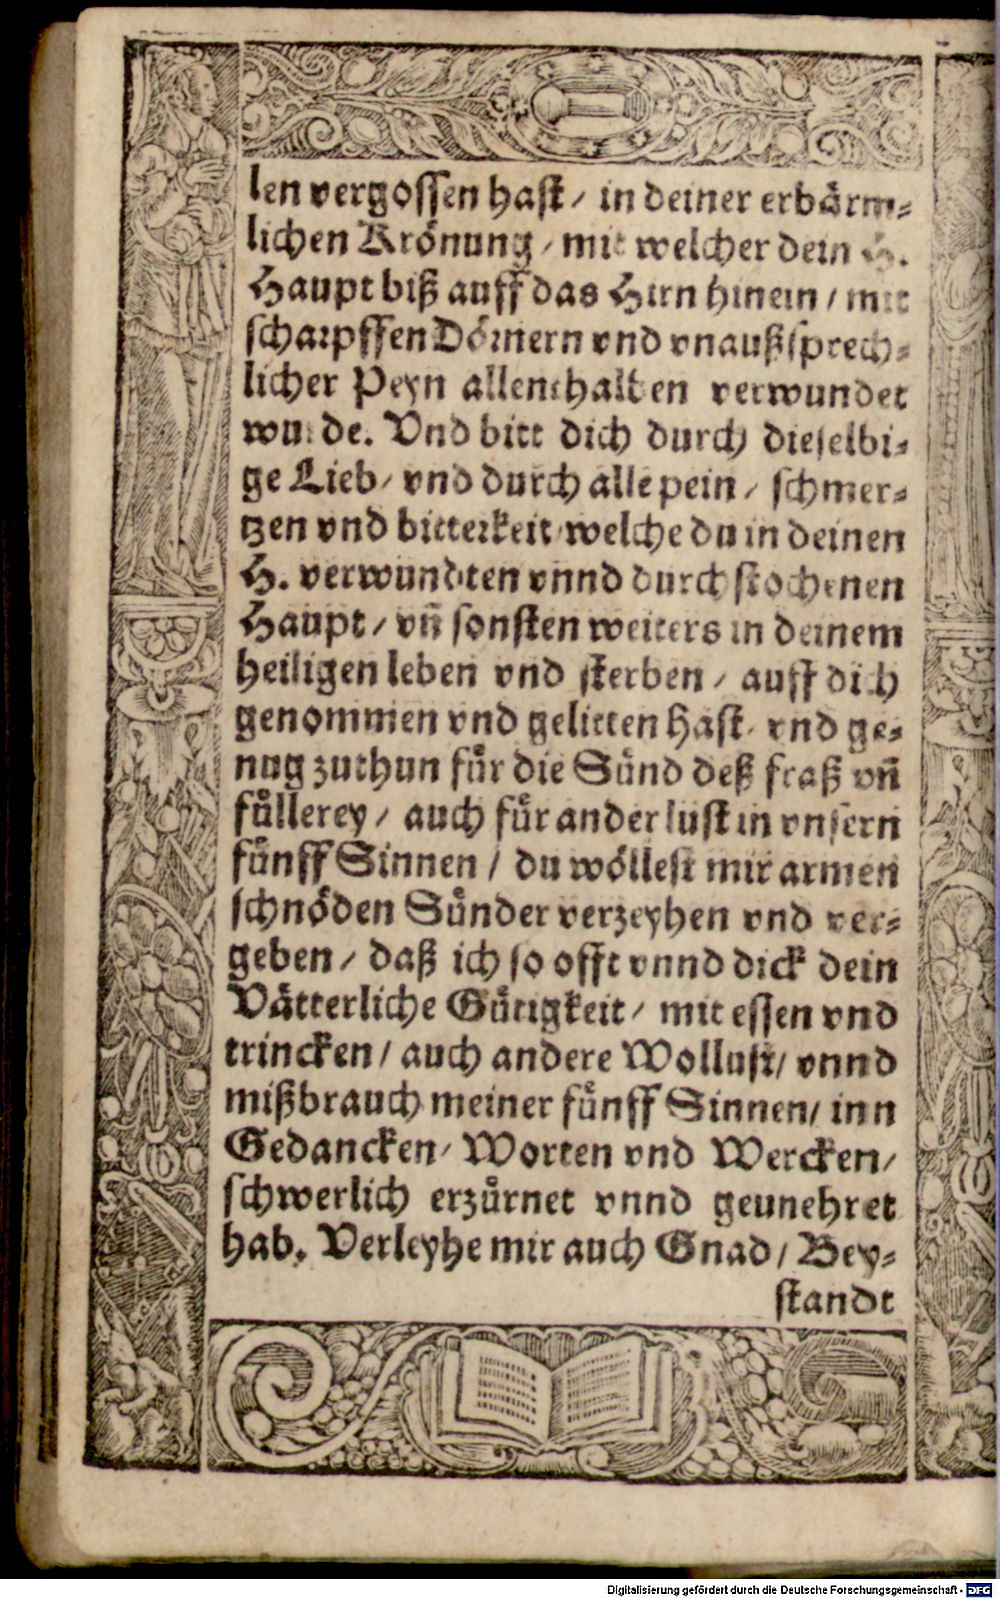 len vergossen hast / in deiner erbårm⸗
lichen Krönung / mit welcher dein H.
Haupt biß auff das Hirn hinein / mit
scharpffen Dörnern vnd vnaußsprech⸗
licher Peyn allenthalben verwundet
wurde. Vnd bitt dich durch dieselbi⸗
ge Lieb / vnd durch alle pein / schmer⸗
tzen vnd bitterkeit welche du in deinen
H. verwundten vnnd durchstochenen
Haupt / vn̄ sonsten weiters in deinem
heiligen leben vnd sterben / auff dich
genommen vnd gelitten hast / vnd ge⸗
nug zuthun fůr die Sůnd deß fraß vn̄
fůllerey / auch fůr ander lust in vnsern
fůnff Sinnen / du wöllest mir armen
schnöden Sůnder verzeyhen vnd ver⸗
geben / daß ich so offt vnnd dick dein
Våtterliche Gůtigkeit / mit essen vnd
trincken / auch andere Wollust / vnnd
mißbrauch meiner fůnff Sinnen / inn
Gedancken / Worten vnd Wercken /
schwerlich erzůrnet vnnd geunehret
hab. Verleyhe mir auch Gnad / Bey⸗
standt
Digitalisierung gefördert durch die Deutsche Forschungsgemeinschaft - DFG